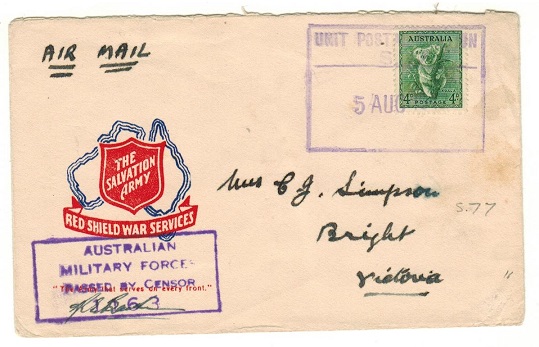 AIR MAIL
UNIT POST
5 AUG
AUSTRALIA
4d 4d
POSTAGE
THE
SALVATION
ARMY
RED SHIELD WAR SERVICES
Mrs C J. Simpson
S.77
Bright
Victoria
"
AUSTRALIAN
MILITARY FORCES
PASSED BY CENSOR
serves on every front."
63